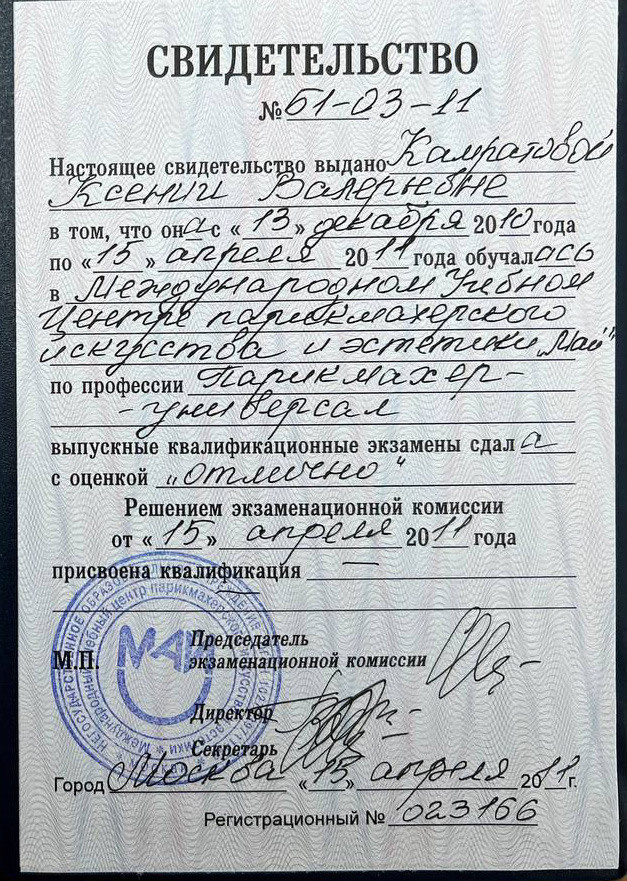 СВИДЕТЕЛЬСТВО
№ 61-03-11
Настоящее свидетельство выдано Камратовой
Ксении Валерьевне
в том, что она с «13» декабря 2010 года
по «15» апреля 2011 года обучалась
в Международном Учебном
Центре парикмахерского
искусства и эстетики „Май"
по профессии Парикмахер-
-универсал
выпускные квалификационные экзамены сдала
с оценкой „отлично"
Решением экзаменационной комиссии
от «15» апреля 2011 года
присвоена квалификация —
—
Председатель
М.П. экзаменационной комиссии
МАЙ
Директор
Секретарь
Город Москва «15» апреля 2011 г.
Регистрационный № 023166